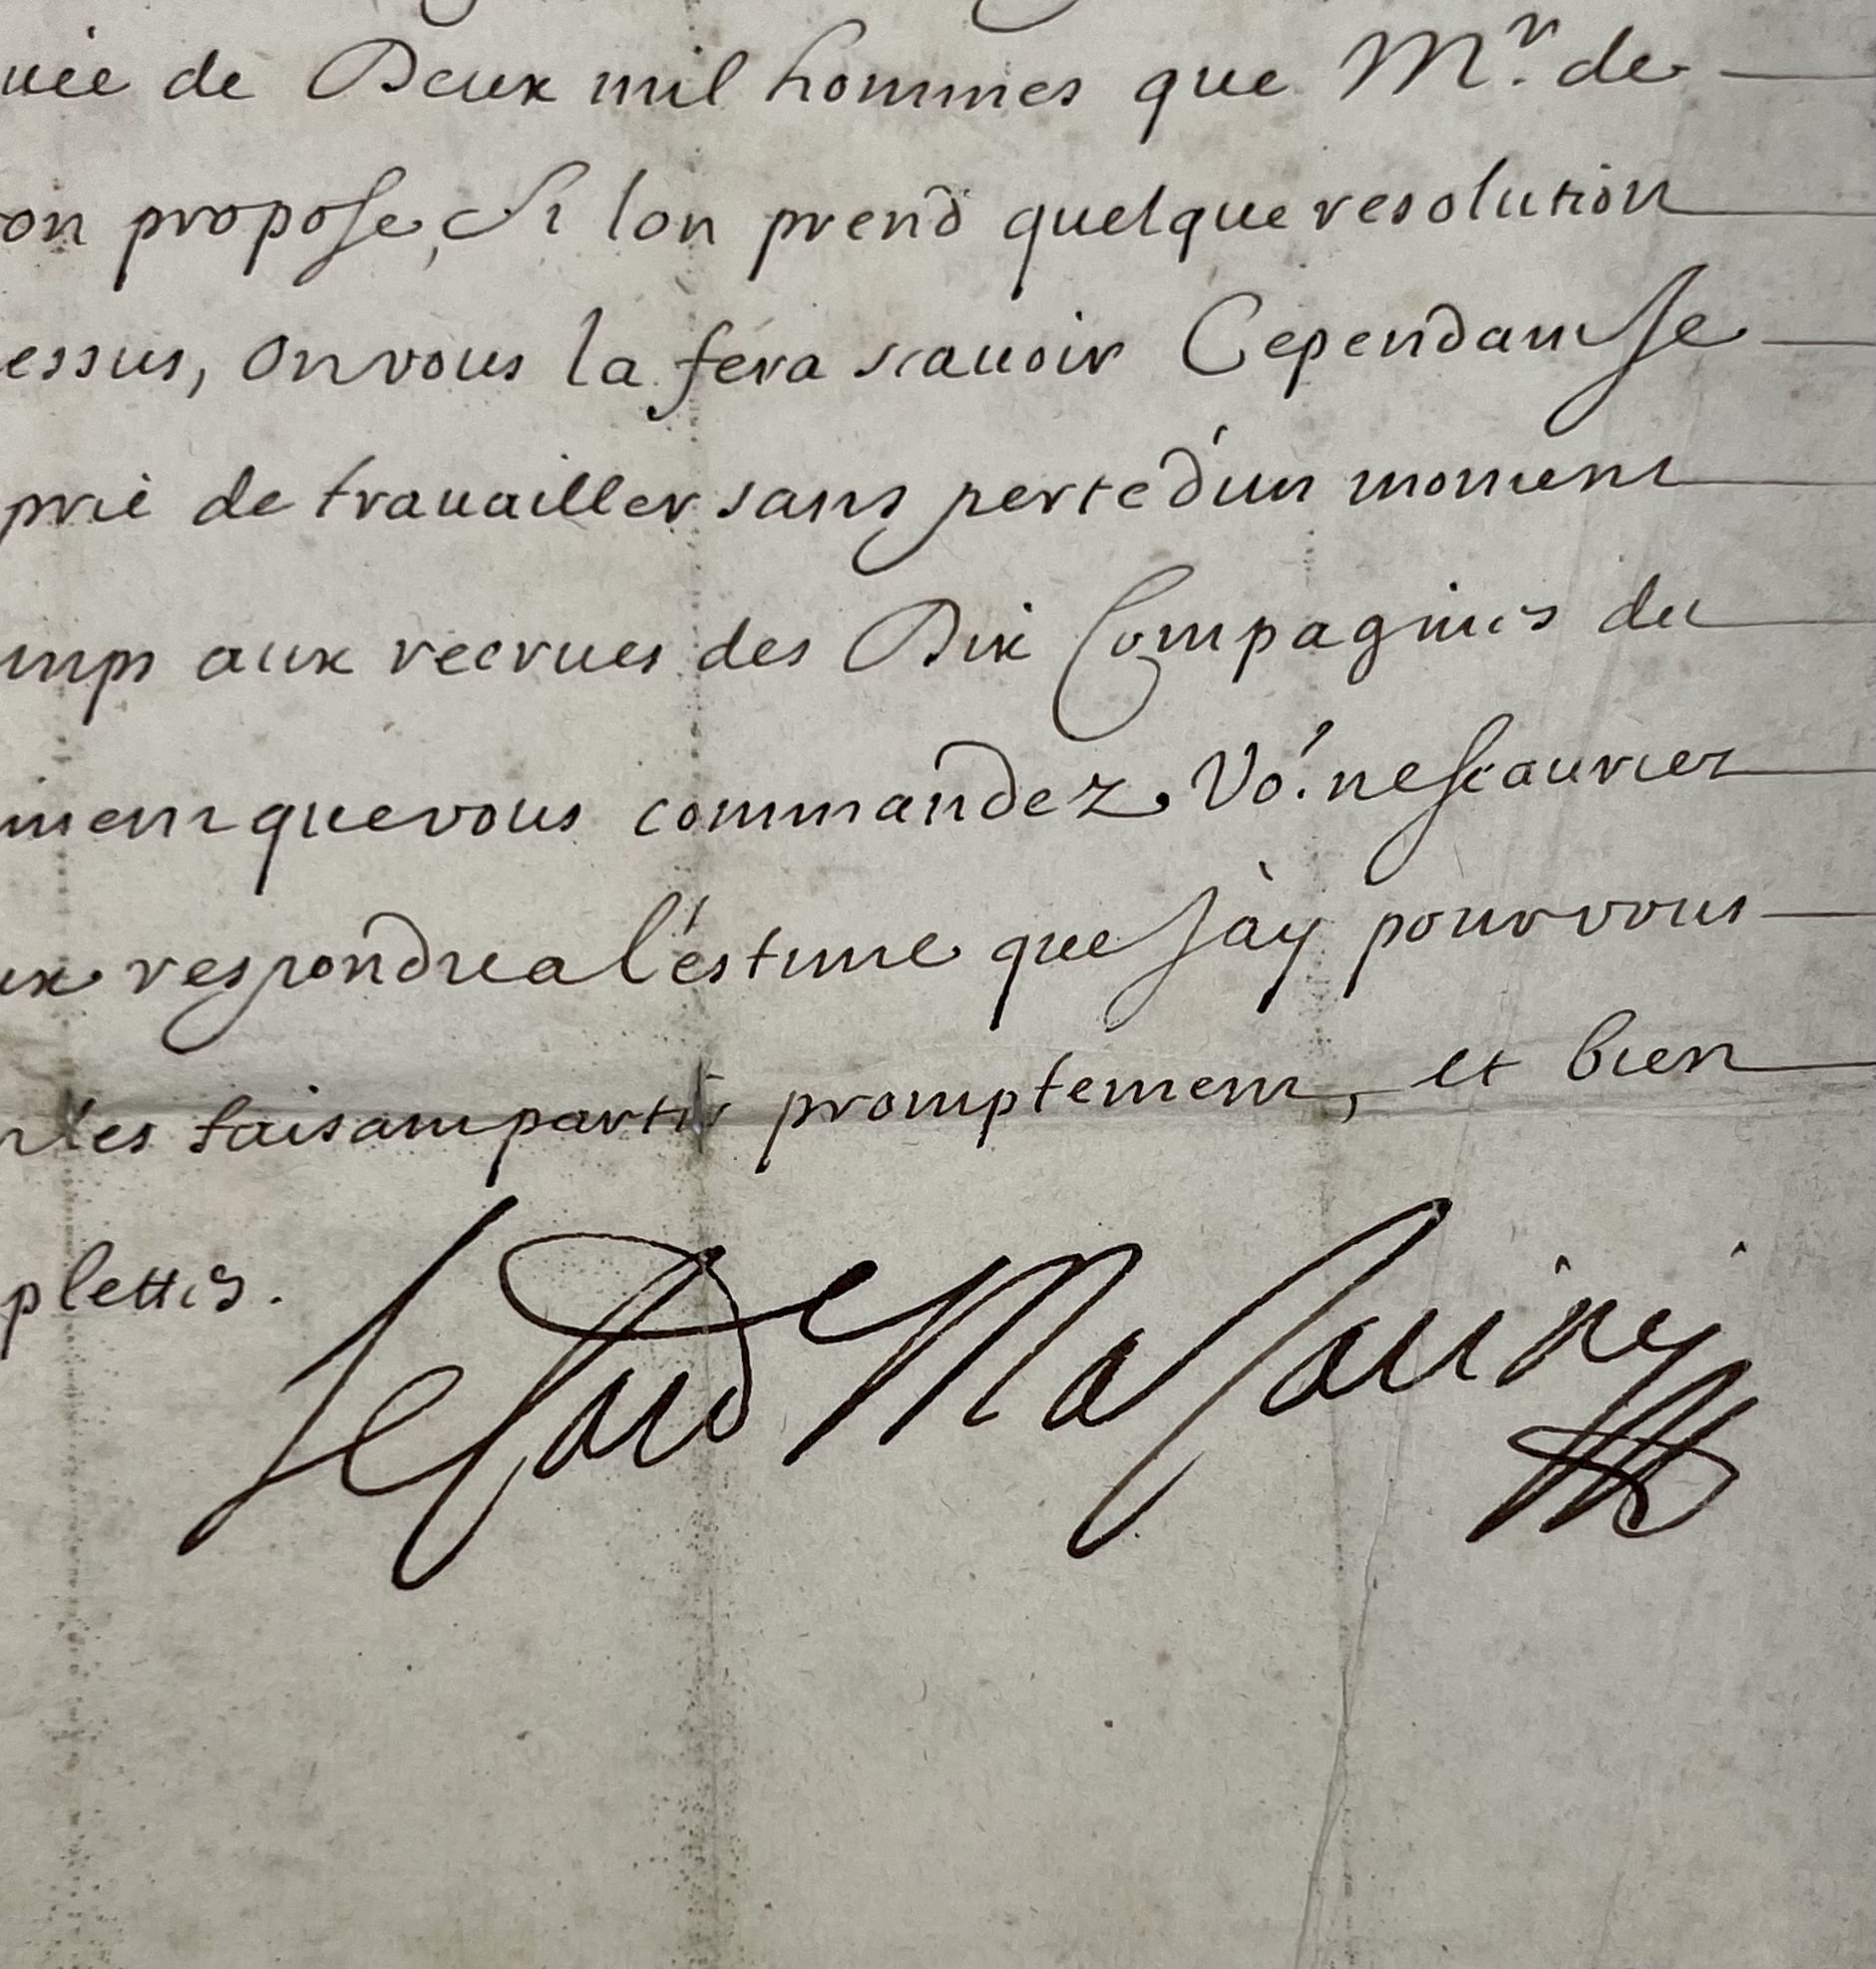 uée de Deux mil hommes que Mr. de
on propose, Si lon prend quelque resolution
essus, on vous la fera scauoir Cependant Je
prie de trauailler sans perte d'un moment
mps aux recrues des Dix Compagnies du
ment que vous commandez. Vo9. ne scauriez
ux respondre a l'éstime que J'ay pour vous
les faisant partir promptement, et bien
plettes.
Le Card Mazarini